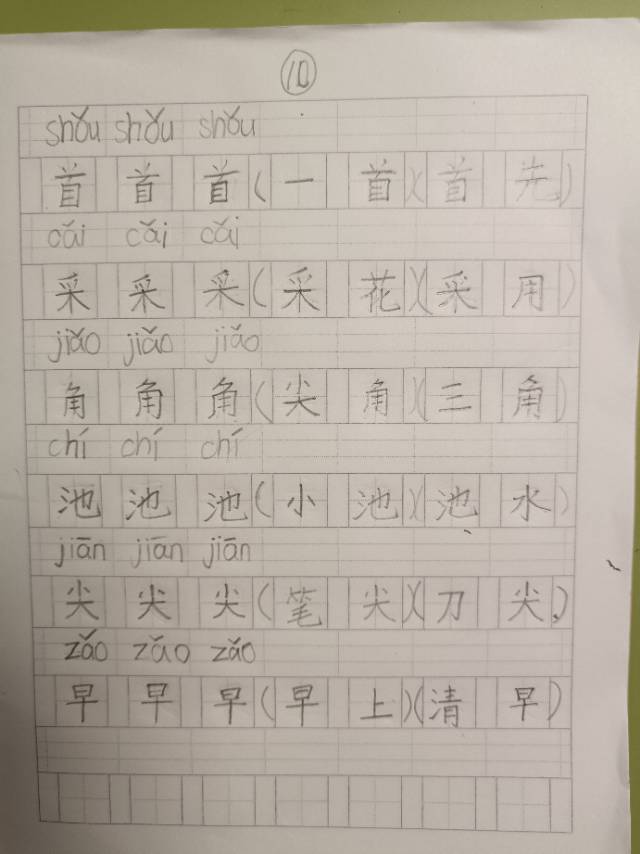 ⑩
shǒu shǒu shǒu
首 首 首 (一 首)(首 先)
cǎi cǎi cǎi
采 采 采 (采 花)(采 用)
jiǎo jiǎo jiǎo
角 角 角 (尖 角)(三 角)
chí chí chí
池 池 池 (小 池)(池 水)
jiān jiān jiān
尖 尖 尖 (笔 尖)(刀 尖)
zǎo zǎo zǎo
早 早 早 (早 上)(清 早)